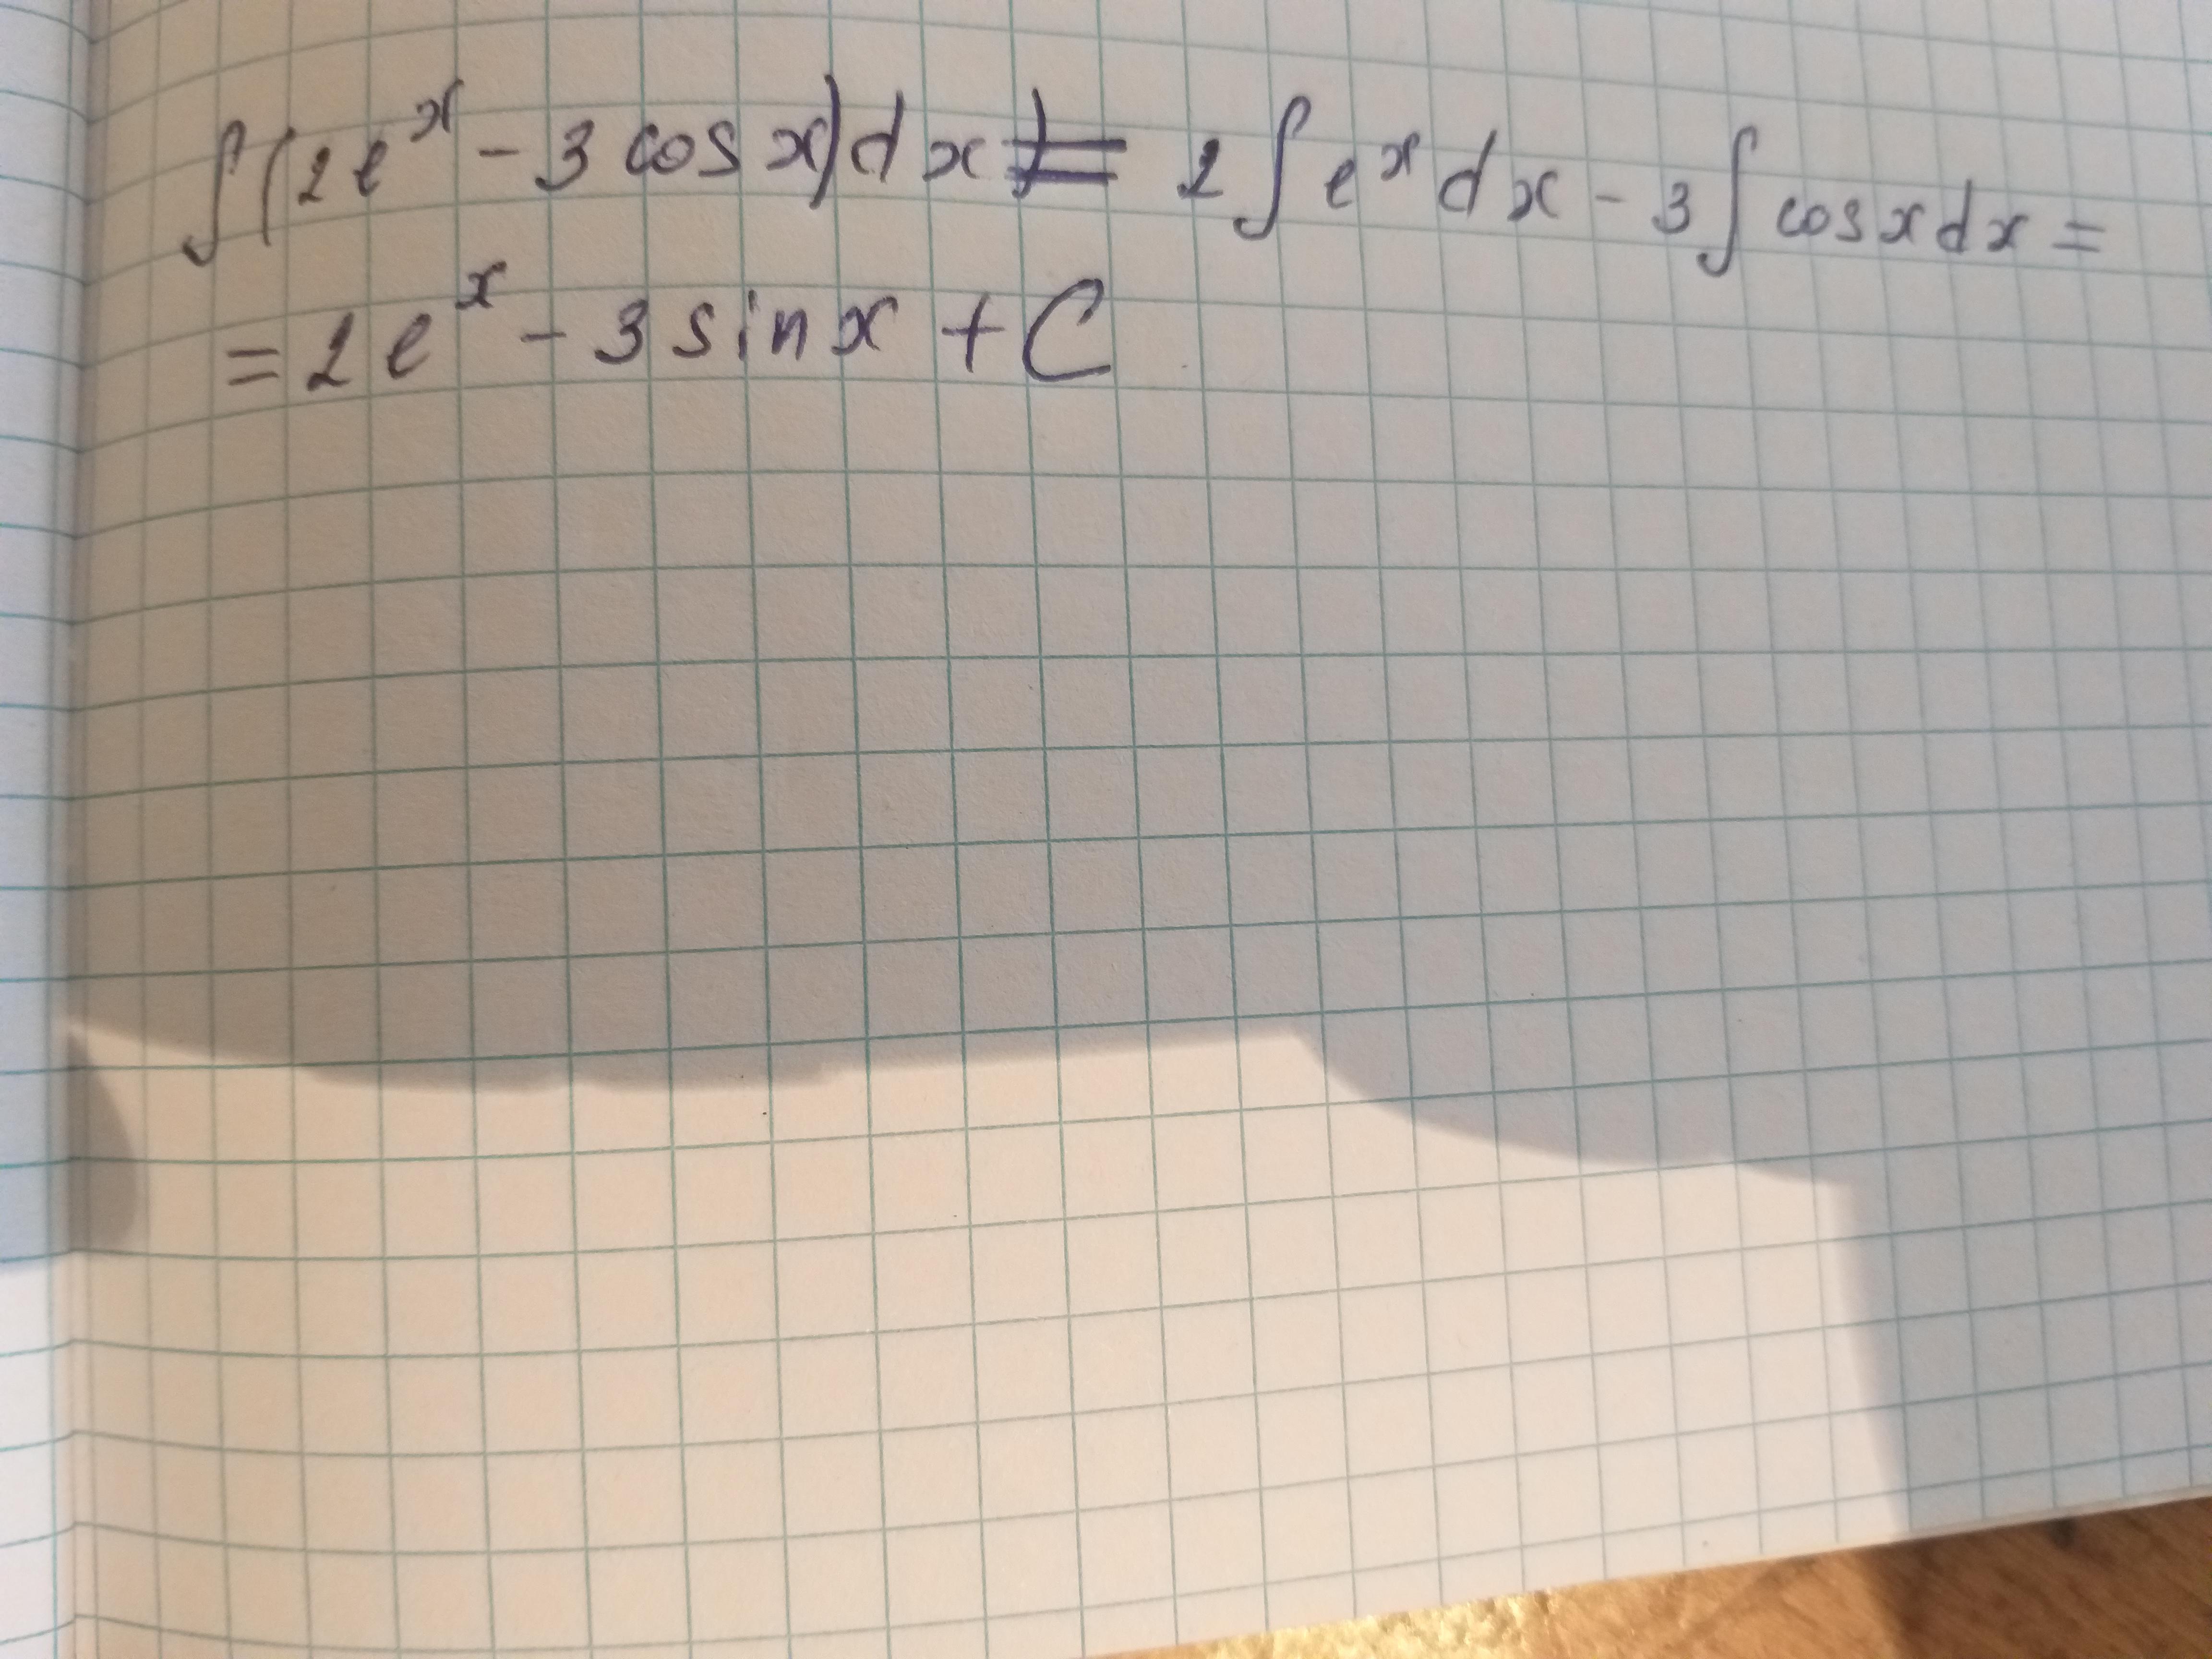 ∫(2e^x - 3 cos x)dx = 2∫e^x dx - 3∫cos x dx =
= 2e^x - 3 sin x + C